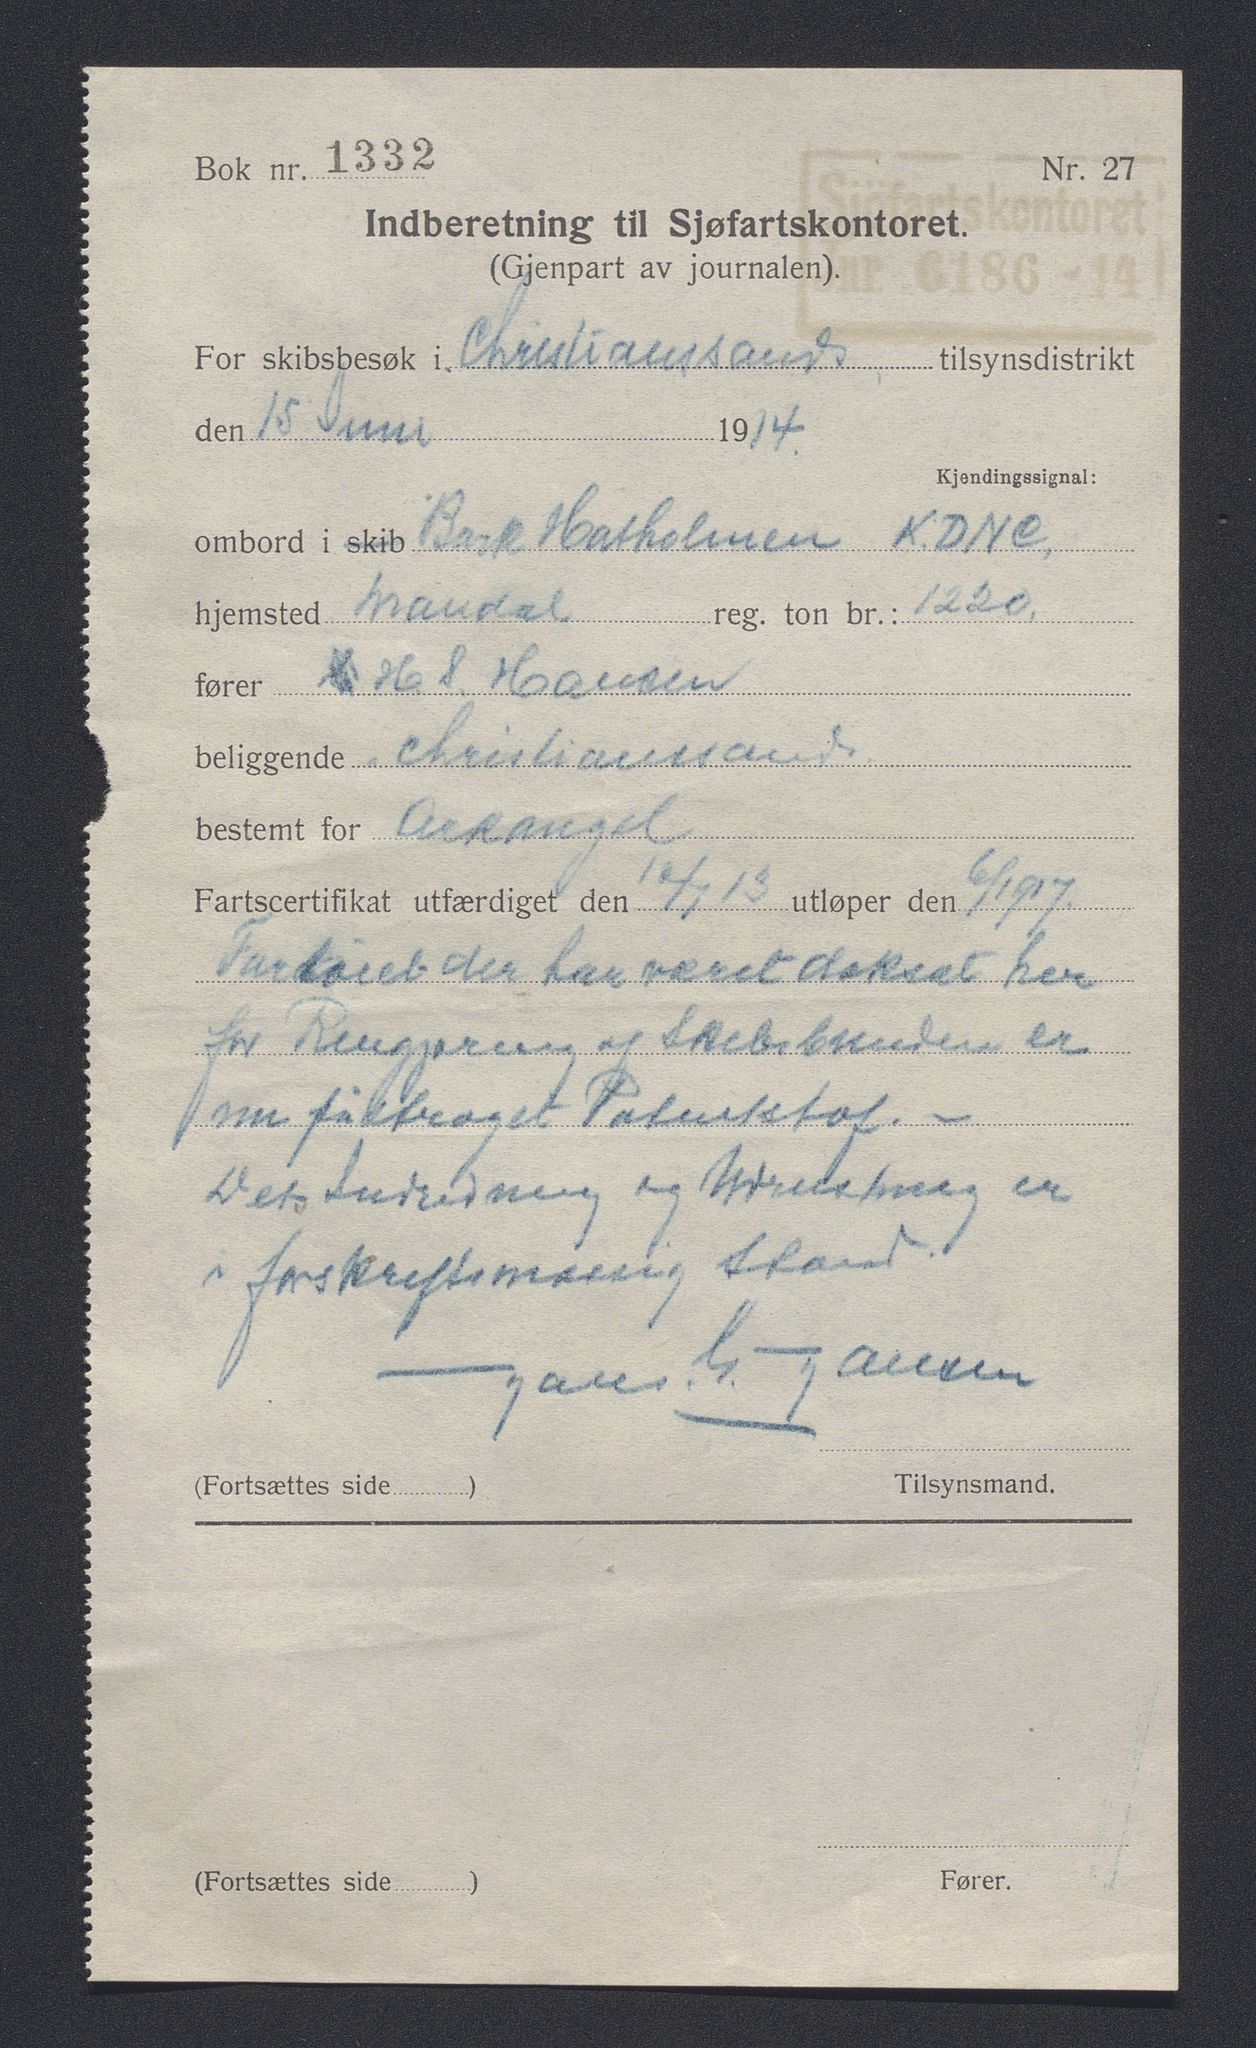 Bok nr. 1332
Nr. 27
Sjöfartskontoret
Jnr 6186 - 14
Indberetning til Sjøfartskontoret.
(Gjenpart av journalen).
For skibsbesøk i Christianssands tilsynsdistrikt
den 15 Juni 1914.
Kjendingssignal:
ombord i skib Bark Hatholmen K.D.N.C.
hjemsted Mandal reg. ton br.: 1220.
fører H S. Hansen
beliggende Christianssand
bestemt for Arkangel
Fartscertifikat utfærdiget den 13 utløper den 6/1917.
Fartøiet der har været doksat her
for Rengjøring og Skibsbunden er
nu påstrøget Patentstof. –
Dets Indredning og Udrustning er
i forskriftsmæssig Stand.
Hans. G. Hansen
(Fortsættes side )
Tilsynsmand.
(Fortsættes side )
Fører.